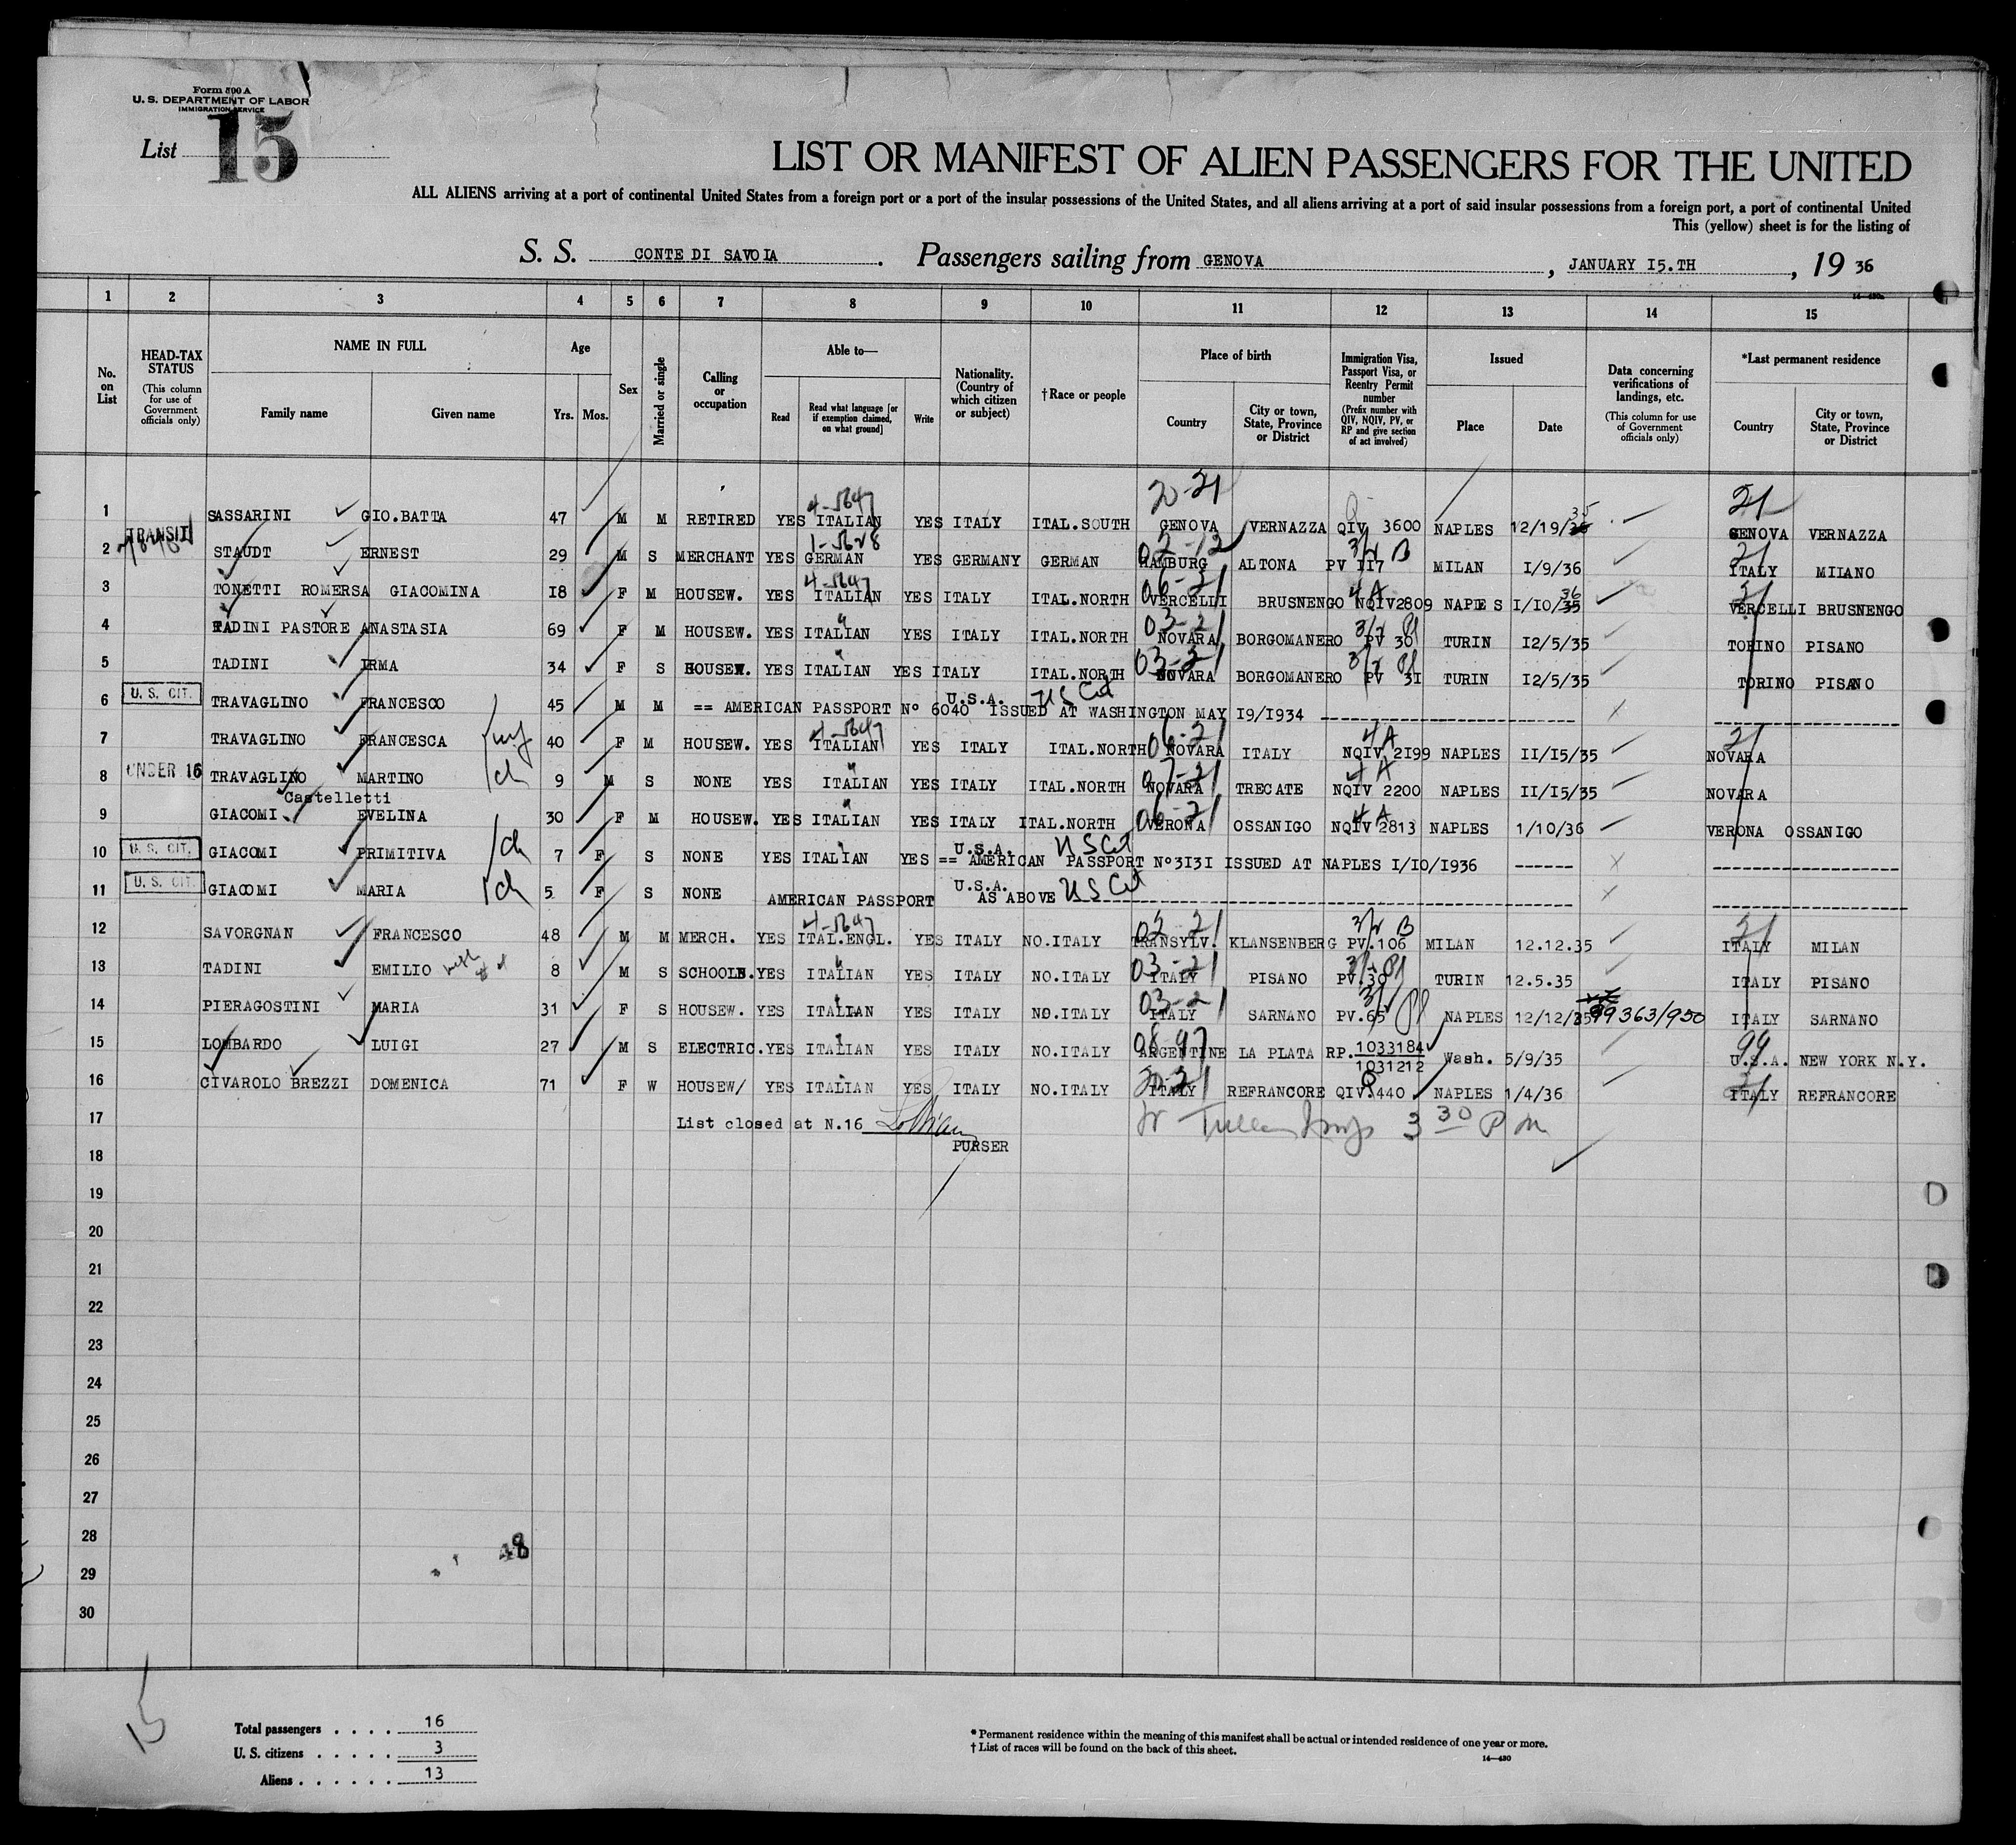 Form 500 A
U. S. DEPARTMENT OF LABOR
IMMIGRATION SERVICE
List 15
LIST OR MANIFEST OF ALIEN PASSENGERS FOR THE UNITED
ALL ALIENS arriving at a port of continental United States from a foreign port or a port of the insular possessions of the United States, and all aliens arriving at a port of said insular possessions from a foreign port, a port of continental United
This (yellow) sheet is for the listing of
S. S. CONTE DI SAVOIA. Passengers sailing from GENOVA, JANUARY I5.TH, 19 36
1 2 3 4 5 6 7 8 9 10 11 12 13 14 15
No. on List
HEAD-TAX STATUS (This column for use of Government officials only)
NAME IN FULL Family name Given name
Age Yrs. Mos.
Sex
Married or single
Calling or occupation
Able to— Read Read what language [or if exemption claimed, on what ground] Write
Nationality. (Country of which citizen or subject)
†Race or people
Place of birth Country City or town, State, Province or District
Immigration Visa, Passport Visa, or Reentry Permit number (Prefix number with QIV, NQIV, PV, or RP and give section of act involved)
Issued Place Date
Data concerning verifications of landings, etc. (This column for use of Government officials only)
*Last permanent residence Country City or town, State, Province or District
4-5647 20-21 Q 35 21
1 SASSARINI GIO.BATTA 47 M M RETIRED YES ITALIAN YES ITALY ITAL.SOUTH GENOVA VERNAZZA QIV 3600 NAPLES 12/19/35 GENOVA VERNAZZA
TRANSIT 1-5628 02-12 3/2 B 21
2 STAUDT ERNEST 29 M S MERCHANT YES GERMAN YES GERMANY GERMAN HAMBURG ALTONA PV II7 MILAN I/9/36 ITALY MILANO
4-5647 06-21 4A 36 21
3 TONETTI ROMERSA GIACOMINA I8 F M HOUSEW. YES ITALIAN YES ITALY ITAL.NORTH VERCELLI BRUSNENGO NQIV2809 NAPLES I/I0/35 VERCELLI BRUSNENGO
" 03-21 3/2 Pl
4 TADINI PASTORE ANASTASIA 69 F M HOUSEW. YES ITALIAN YES ITALY ITAL.NORTH NOVARA BORGOMANERO PV 30 TURIN I2/5/35 TORINO PISANO
" 03-21 3/2 Pl
5 TADINI IRMA 34 F S HOUSEW. YES ITALIAN YES ITALY ITAL.NORTH NOVARA BORGOMANERO PV 3I TURIN I2/5/35 TORINO PISANO
U. S. CIT. U.S.A. US Cit
6 TRAVAGLINO FRANCESCO 45 M M == AMERICAN PASSPORT Nº 6040 ISSUED AT WASHINGTON MAY I9/I934
wf 4-5647 06-21 4A 21
7 TRAVAGLINO FRANCESCA 40 F M HOUSEW. YES ITALIAN YES ITALY ITAL.NORTH NOVARA ITALY NQIV 2I99 NAPLES II/I5/35 NOVARA
UNDER 16 ch " 07-21 4A
8 TRAVAGLINO MARTINO 9 M S NONE YES ITALIAN YES ITALY ITAL.NORTH NOVARA TRECATE NQIV 2200 NAPLES II/I5/35 NOVARA
Castelletti " 06-21 4A
9 GIACOMI EVELINA 30 F M HOUSEW. YES ITALIAN YES ITALY ITAL.NORTH VERONA OSSANIGO NQIV 2813 NAPLES 1/10/36 VERONA OSSANIGO
U. S. CIT. ch U.S.A. US Cit
10 GIACOMI PRIMITIVA 7 F S NONE YES ITALIAN YES == AMERICAN PASSPORT Nº3I3I ISSUED AT NAPLES I/I0/I936
U. S. CIT. ch U.S.A. US Cit
11 GIACOMI MARIA 5 F S NONE AMERICAN PASSPORT AS ABOVE
4-5647 02-21 3/2 B 21
12 SAVORGNAN FRANCESCO 48 M M MERCH. YES ITAL.ENGL. YES ITALY NO.ITALY TRANSYLV. KLANSENBERG PV.106 MILAN 12.12.35 ITALY MILAN
" 03-21 3/2 Pl
13 TADINI EMILIO 8 M S SCHOOLB. YES ITALIAN YES ITALY NO.ITALY ITALY PISANO PV.30 TURIN 12.5.35 ITALY PISANO
" 03-21 3/2 Pl
14 PIERAGOSTINI MARIA 31 F S HOUSEW. YES ITALIAN YES ITALY NO.ITALY ITALY SARNANO PV.65 NAPLES 12/12/35 99363/950 ITALY SARNANO
" 08-97 99
15 LOMBARDO LUIGI 27 M S ELECTRIC. YES ITALIAN YES ITALY NO.ITALY ARGENTINE LA PLATA RP. 1033184 1031212 Wash. 5/9/35 U.S.A. NEW YORK N.Y.
20-21 Q 21
16 CIVAROLO BREZZI DOMENICA 71 F W HOUSEW/ YES ITALIAN YES ITALY NO.ITALY ITALY REFRANCORE QIV.440 NAPLES 1/4/36 ITALY REFRANCORE
17 List closed at N.16 3 30 P m
PURSER
18
19
20
21
22
23
24
25
26
27
28
48
29
30
15
Total passengers . . . . 16
U. S. citizens . . . . . 3
Aliens . . . . . . 13
* Permanent residence within the meaning of this manifest shall be actual or intended residence of one year or more.
† List of races will be found on the back of this sheet.
14—430